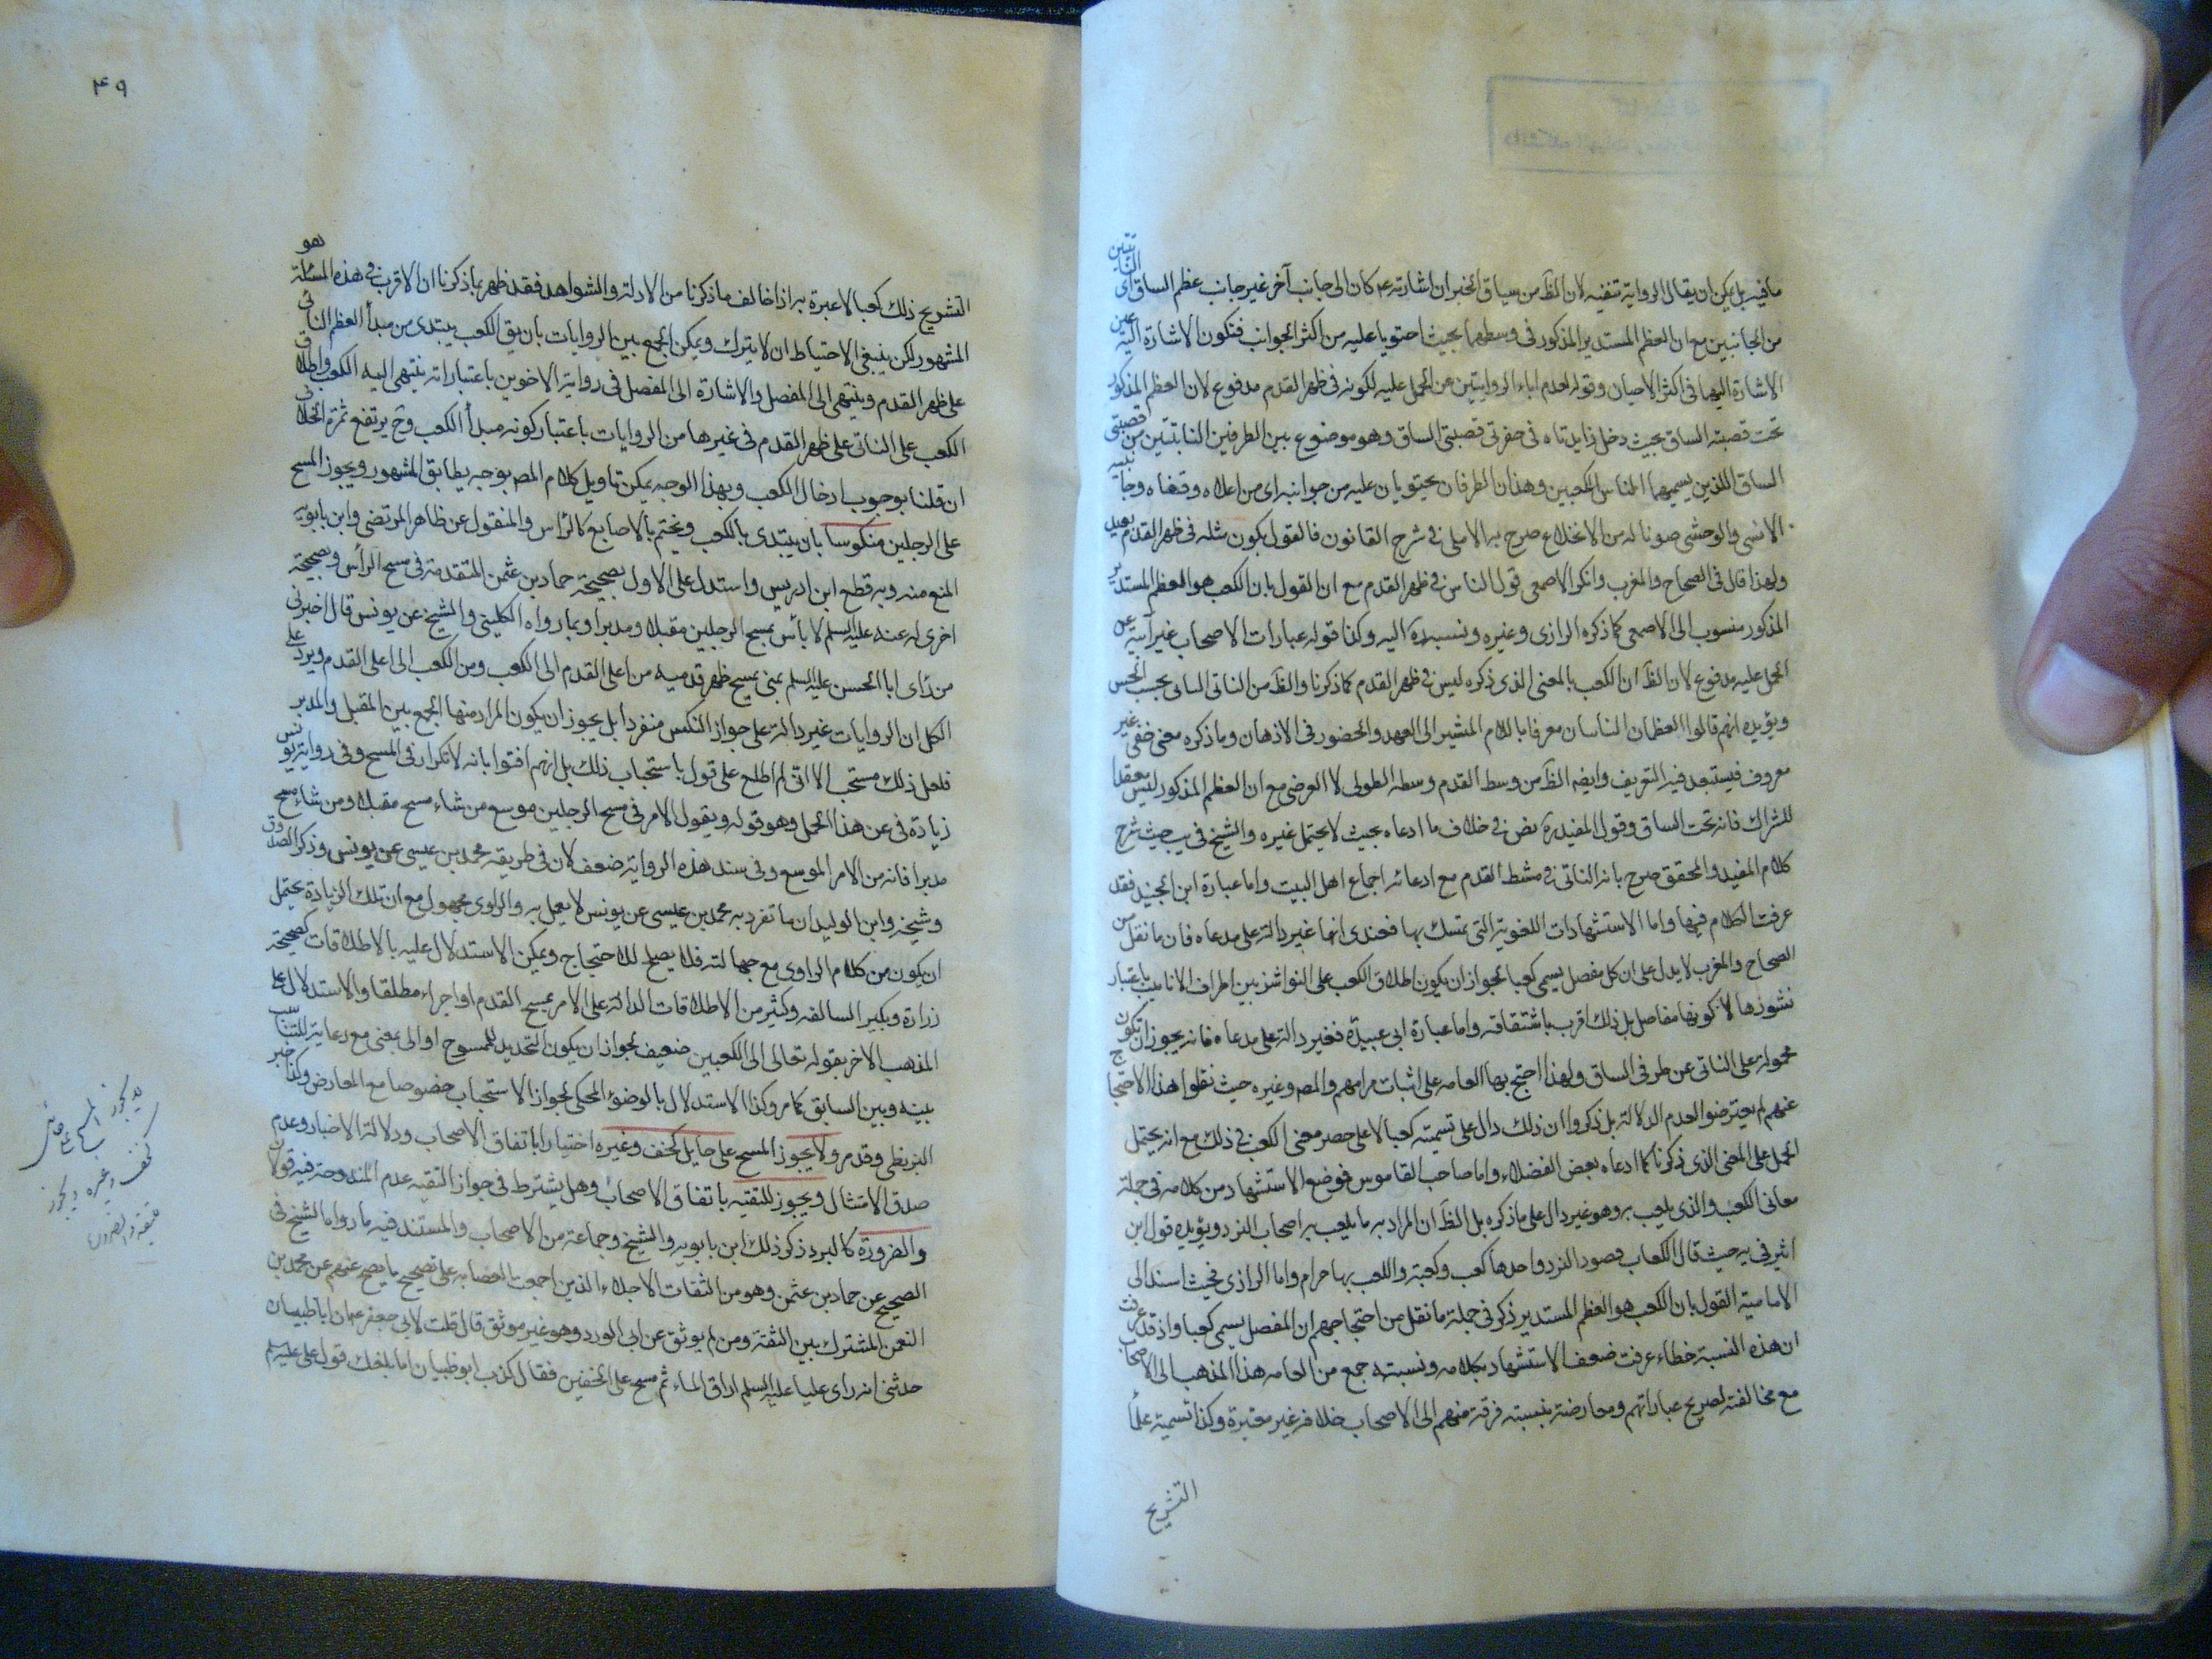 ما فيه بل يمكن ان يقال الرواية تنفيه لان الظ من سياق الخبر ان اشارته ع كان الى جانب آخر غير جانب عظم الساق اى الناتيين
من الجانبين مع ان العظم المستدير المذكور فى وسطهما بحيث احتويا عليه من اكثر الجوانب فتكون الاشارة اليه عين
الاشارة اليهما فى اكثر الاحيان وقوله لعدم اباء الروايتين عن الحمل عليه لكونه فى ظهر القدم مدفوع لان العظم المذكور
تحت قصبة الساق بحيث دخل زايدتاه فى حفرتى قصبتى الساق وهو موضوع بين الطرفين الناتيين من قصبتى
الساق اللذين يسميهما الناس الكعبين وهذان الطرفان يحتويان عليه من جوانبه اى من اعلاه وقفاه وجانبيه
الانسى والوحشى صونا له من الانخلاع صرح به الاملى فى شرح القانون فالقول بكون مثله فى ظهر القدم بعيد
ولهذا قال فى الصحاح والمغرب وانكر الاصمعى قول الناس فى ظهر القدم مع ان القول بان الكعب هو العظم المستدير
المذكور منسوب الى الاصمعى كما ذكره الرازى وغيره ونسبه اليه وكذا قوله عبارات الاصحاب غير آبية عن
الحمل عليه مدفوع لان الظ ان الكعب بالمعنى الذى ذكره ليس فى ظهر القدم كما ذكرنا والظ من الناتى الناتى بحسب الحس
ويؤيده انهم قالوا العظمان الناتيان معرفا باللام المشير الى العهد والحضور فى الاذهان وما ذكره معنى خفى غير
معروف فيستبعد فيه التعريف وايضا الظ من وسط القدم وسطه الطولى لا العرضى مع ان العظم المذكور ليس معقدا
للشراك فانه تحت الساق وقول المفيد ره نص فى خلاف ما ادعاه بحيث لا يحتمل غيره والشيخ فى يب حيث شرح
كلام المفيد والمحقق صرح بانه الناتى فى مشط القدم مع ادعائه اجماع اهل البيت واما عبارة ابن الجنيد فقد
عرفت الكلام فيها واما الاستشهادات اللغوية التى تمسك بها فعندى انها غير دالة على مدعاه فان ما نقل من
الصحاح والمغرب لا يدل على ان كل مفصل يسمى كعبا لجواز ان يكون اطلاق الكعب على النواشز بين اطراف الانابيب باعتبار
نشوزها لا كونها مفاصل بل ذلك اقرب باشتقاقه واما عبارة ابى عبيدة فغير دالة على مدعاه فانه يجوز ان تكون
محمولة على الناتى عن طرفى الساق ولهذا احتج بها العامه على اثبات مرامهم والمص وغيره حيث نقلوا هذا الاحتجاج
عنهم لم يعترضوا لعدم الدلالة بل ذكروا ان ذلك دال على تسميته كعبا لا على حصر معنى الكعب فى ذلك مع انه يحتمل
الحمل على المعنى الذى ذكرنا كما ادعاه بعض الفضلاء واما صاحب القاموس فوضع الاستشهاد من كلامه فى جملة
معانى الكعب والذى يلعب به وهو غير دال على ما ذكره بل الظ ان المراد به ما يلعب به اصحاب النرد ويؤيده قول ابن
اثير فى يه حيث قال الكعاب فصوص النرد واحدها كعب وكعبة واللعب بها حرام واما الرازى فحيث اسند الى
الامامية القول بان الكعب هو العظم المستدير ذكر فى جملة ما نقل من احتجاجهم ان المفصل يسمى كعبا واذ قد عرفت
ان هذه النسبة خطاء عرفت ضعف الاستشهاد بكلامه ونسبته جمع من العامه هذا المذهب الى الاصحاب
مع مخالفته لصريح عباراتهم ومعارضته بنسبته فرقة منهم الى الاصحاب خلافه غير معتبرة وكذا تسمية علماء
التشريح
٤٩
التشريح ذلك كعبا لا عبرة به اذا خالف ما ذكرنا من الادلة والشواهد فقد ظهر بما ذكرنا ان الاقرب فى هذه المسئلة هو
المشهور لكن ينبغى الاحتياط ان لا يترك ويمكن الجمع بين الروايات بان يق الكعب يبتدى من مبدأ العظم الناتى
على ظهر القدم وينتهى الى المفصل والاشارة الى المفصل فى رواية الاخوين باعتبار انه ينتهى اليه الكعب واطلاق
الكعب على الناتى على ظهر القدم فى غيرها من الروايات باعتبار كونه مبدأ الكعب وح يرتفع ثمرة الخلاف
ان قلنا بوجوب ادخال الكعب وبهذا الوجه يمكن تاويل كلام المص بوجه يطابق المشهور ويجوز المسح
على الرجلين منكوسا بان يبتدى بالكعب ويختم بالاصابع كالرأس والمنقول عن ظاهر المرتضى وابن بابويه
المنع منه وبه قطع ابن ادريس واستدل على الاول بصحيحة حماد بن عثمن المتقدمة فى مسح الرأس وبصحيحة
اخرى له عنه عليه السلم لا بأس بمسح الرجلين مقبلا ومدبرا وبما رواه الكلينى والشيخ عن يونس قال اخبرنى
من رأى ابا الحسن عليه السلم بمنى يمسح ظهر قدميه من اعلى القدم الى الكعب ومن الكعب الى اعلى القدم ويرد على
الكل ان الروايات غير دالة على جواز النكس منفردا بل يجوز ان يكون المراد منها الجمع بين المقبل والمدبر
فلعل ذلك مستحب الا انى لم اطلع على قول باستحباب ذلك بل انهم افتوا بانه لا تكرار فى المسح وفى رواية يونس
زيادة فى عن هذا الحمل وهو قوله ويقول الامر فى مسح الرجلين موسع من شاء مسح مقبلا ومن شاء مسح
مدبرا فانه من الامر الموسع وفى سند هذه الرواية ضعف لان فى طريقه محمد بن عيسى عن يونس وذكر الصدوق
وشيخه وابن الوليد ان ما تفرد به محمد بن عيسى عن يونس لا يعمل به والراوى مجهول مع ان تلك الزيادة يحتمل
ان يكون من كلام الراوى مع جهالته فلا يصلح للاحتجاج ويمكن الاستدلال عليه بالاطلاقات كصحيحة
زرارة وبكير السالفه وكثير من الاطلاقات الدالة على الامر بمسح القدم او اجراء مطلقا والاستدلال على
المذهب الاخر بقوله تعالى الى الكعبين ضعيف لجواز ان يكون التحديد للممسوح او الى بمعنى مع رعاية للتناسب
بينه وبين السابق كما مر وكذا الاستدلال بالوضوء المحكى لجواز الاستحباب خصوصا مع المعارض وكذا خبر
البزنطى وقد مر ولا يجوز المسح على حايل كخف وغيره اختيارا باتفاق الاصحاب ودلالة الاخبار وعدم
صدق الامتثال ويجوز للتقيه باتفاق الاصحاب وهل يشترط فى جواز التقيه عدم المندوحة فيه قولان
والضرورة كالبرد ذكر ذلك ابن بابويه والشيخ وجماعة من الاصحاب والمستند فيه ما رواه الشيخ فى
الصحيح عن حماد بن عثمن وهو من الثقات الاجلاء الذين اجمعت العصابه على تصحيح ما يصح عنهم عن محمد بن
النعمن المشترك بين الثقة ومن لم يوثق عن ابى الورد وهو غير موثق قال قلت لابى جعفر ع ان ابا ظبيان
حدثنى انه راى عليا عليه السلم اراق الماء ثم مسح على الخفين فقال كذب ابو ظبيان اما بلغك قول على عليه سلم